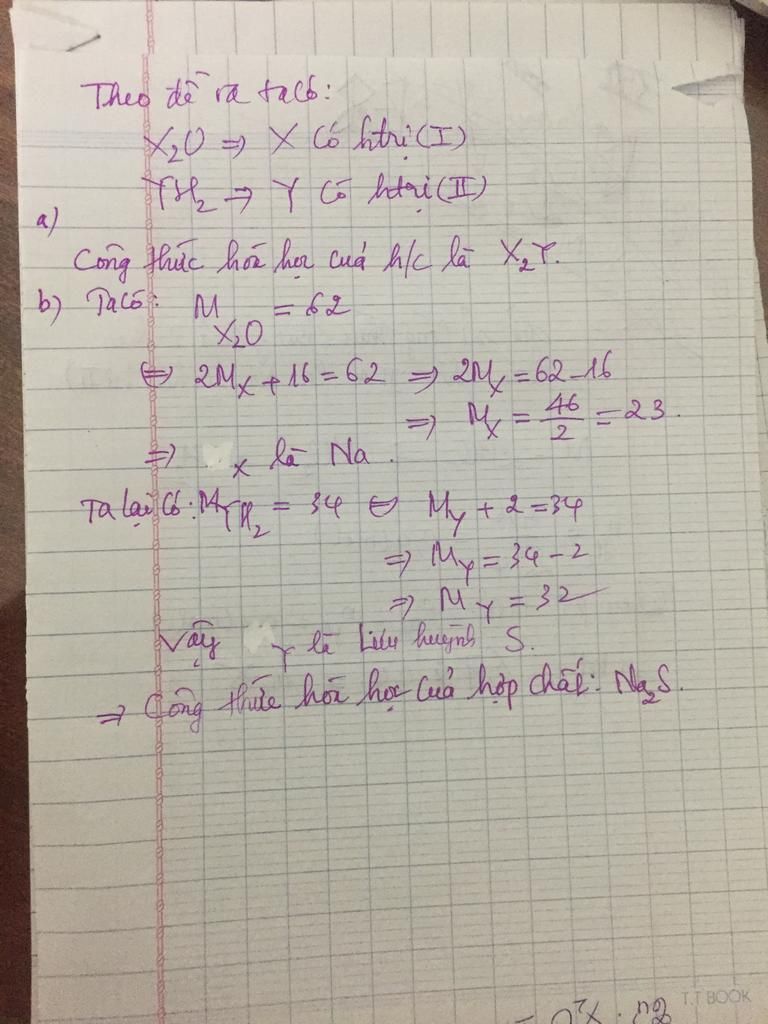 Theo đề ra ta có:
X₂O ⇒ X có htrị (I)
YH₂ → Y có htrị (II)
a)
Công thức hóa học cuả h/c là X₂Y.
b) Ta có: M X₂O = 62
⇔ 2Mx + 16 = 62 ⇒ 2Mx = 62 - 16
⇒ Mx = 46/2 = 23.
⇒ x là Na.
Ta lại có: M YH₂ = 34 ⇔ My + 2 = 34
⇒ My = 34 - 2
⇒ My = 32
Vậy Y là Lưu huỳnh S.
⇒ Công thức hóa học của hợp chất: Na₂S.
T.T BOOK